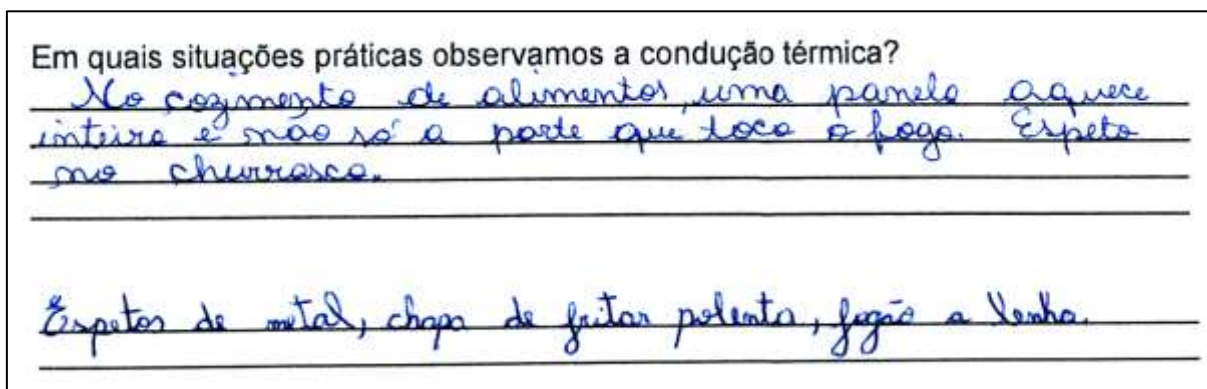 Em quais situações práticas observamos a condução térmica?
No cozimento de alimentos, uma panela aquece
inteira e não só a parte que toca o fogo. Espeto
no churrasco.
Espetos de metal, chapa de fritar polenta, fogão a lenha.